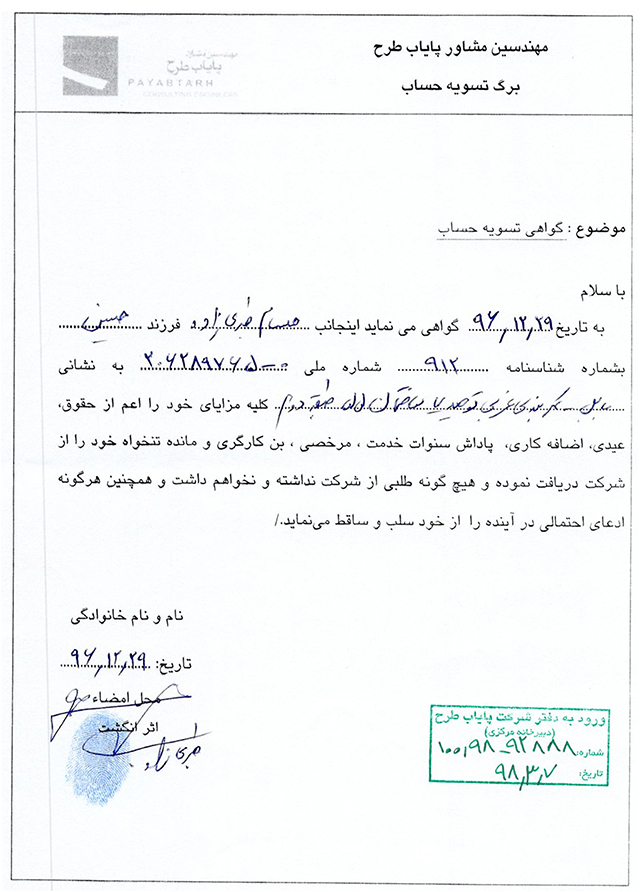 مهندسین مشاور پایاب طرح
برگ تسویه حساب
مهندسین مشاور
پایاب طرح
PAYABTARH
CONSULTING ENGINEERS
موضوع : گواهی تسویه حساب
با سلام
به تاریخ ۹۶,۱۲,۲۹ گواهی می نماید اینجانب حسام طبری زاده فرزند حسین
بشماره شناسنامه ۹۱۲ شماره ملی ۲۰۶۲۸۹۷۶۵۰-۰ به نشانی
بابل - کمربندی غربی توحید ۷ ساختمان طبقه دوم کلیه مزایای خود را اعم از حقوق،
عیدی، اضافه کاری، پاداش سنوات خدمت ، مرخصی ، بن کارگری و مانده تنخواه خود را از
شرکت دریافت نموده و هیچ گونه طلبی از شرکت نداشته و نخواهم داشت و همچنین هرگونه
ادعای احتمالی در آینده را از خود سلب و ساقط می‌نماید./
نام و نام خانوادگی
تاریخ: ۹۶,۱۲,۲۹
محل امضاء
اثر انگشت
طبری زاده
ورود به دفتر شرکت پایاب طرح
(دبیرخانه مرکزی)
شماره: ۱۰۰,۹۸-۹۲۸۸۸
تاریخ: ۹۸,۳,۷